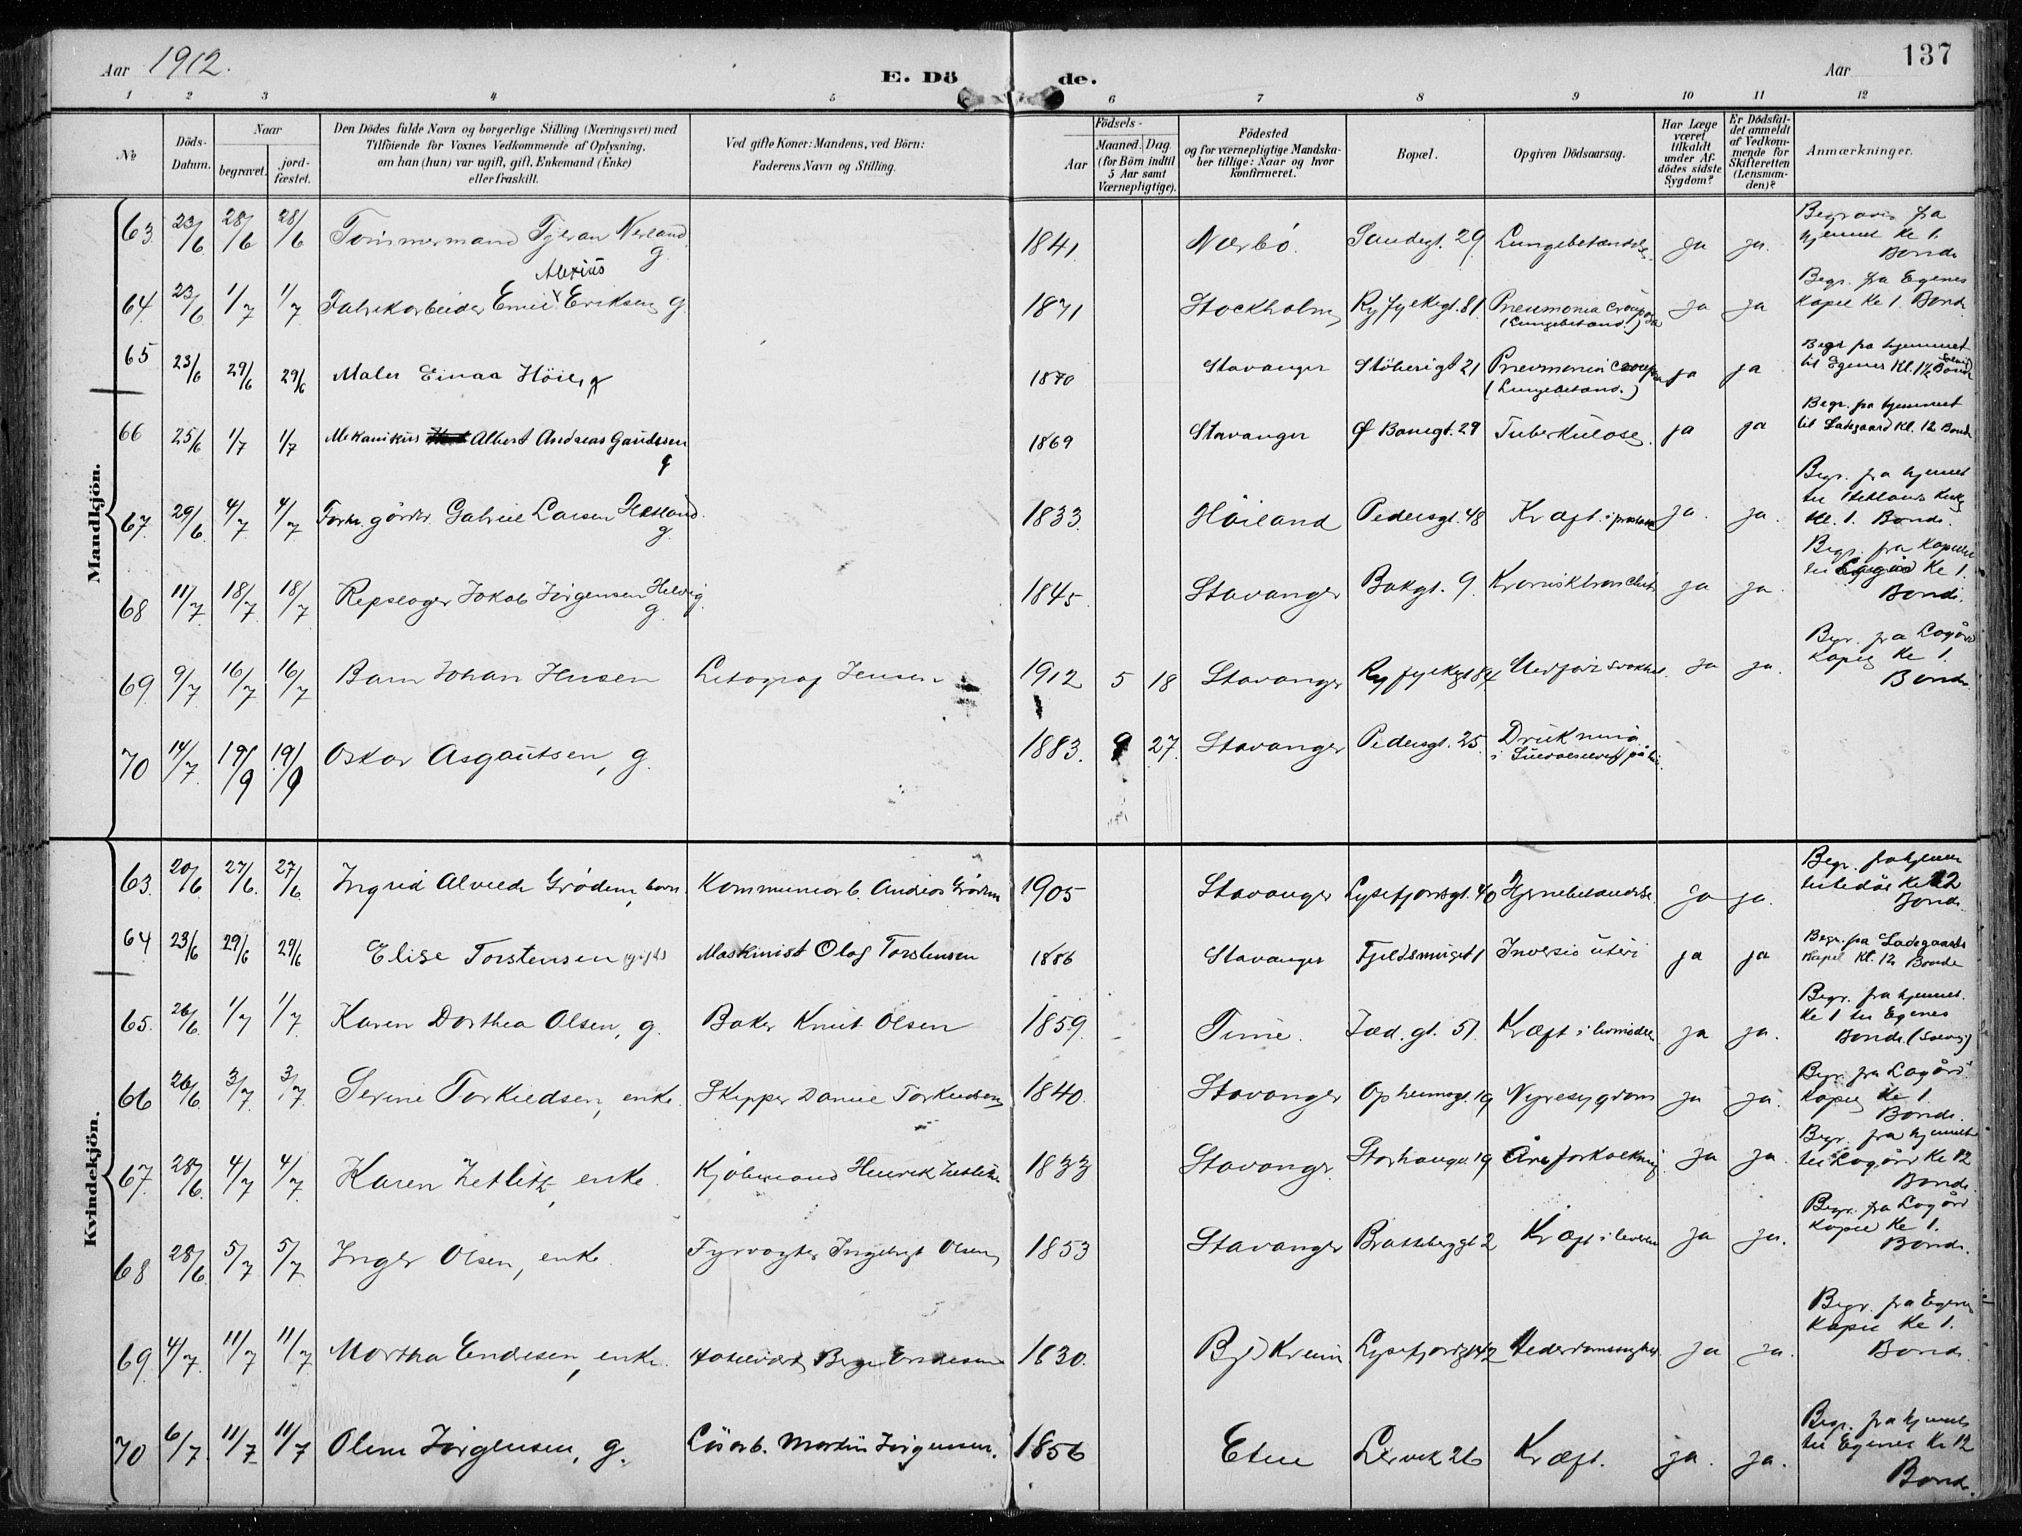 Aar 1912. E. Dö de. Aar 137
1 2 3 4 5 6 7 8 9 10 11 12
№ Döds-Datum. Naar begravet. jord-fæstet. Den Dödes fulde Navn og borgerlige Stilling (Næringsvei) med Tilföiende for Voxnes Vedkommende af Oplysning, om han (hun) var ugift, gift, Enkemand (Enke) eller fraskilt. Ved gifte Koner: Mandens, ved Börn: Faderens Navn og Stilling. Födsels- Aar Maaned. Dag. (for Börn indtil 5 Aar samt Værnepligtige). Födested og for værnepligtige Mandskaber tillige: Naar og hvor konfirmeret. Bopæl. Opgiven Dödsaarsag. Har Læge været tilkaldt under Afdödes sidste Sygdom? Er Dödsfaldet anmeldt af Vedkommende for Skifteretten (Lensmanden)? Anmærkninger.
Mandkjön.
63. 23/6 28/6 28/6 Tömmermand Tjeran Nerland g. 1841. Nærbö. Sandsgt. 29. Lungebetændelse ja ja. Begraves fra hjemmet Kl 1. Bonde
64. 23/6 1/7 1/7 Fabrikarbeider Emil Alexius Eriksen g 1871 Stockholm Ryfylkegt. 81. Pneumonia crouposa (Lungebetænd.) ja ja Begr. fra Egenes Kapel Kl 1. Bonde
65 23/6 29/6 29/6 Maler Einar g 1870 Stavanger Stöberigt 21 Pneumonia croup (Lungebetænd.) ja ja Begr fra hjemmet til Egenes Kl. 1½ Bonde
66 25/6 1/7 1/7 Mekanikus Albert Andreas Gaudesen g 1869 Stavanger Ø Banegt. 29 Tuberkulose ja ja Begr. fra hjemmet til Ladegaard Kl. 12 Bonde
67. 29/6 4/7 4/7 Gabriel Larsen Hetland g. 1833. Höiland Pedersgt. 48 Kræft i ja. ja. Begr. fra hjemmet til Hetlands Kirkeg Kl. 1. Bonde.
68 11/7 18/7 18/7 Repslager Jakob Jörgensen Helvig g. 1845. Stavanger Bakgt. 9. Kronisk bronchit ja ja. Begr. fra Kapellet til Kl 1. Bonde.
69. 9/7 16/7 16/7 Barn Johan Jensen Litograf Jensen 1912 5 18 Stavanger Ryfylkegt 84 Medfödt svakhet. ja ja. Begr. fra Lagård Kapel Kl 1. Bonde.
70 14/7 19/9 19/9 Oskar Asgautsen, g. 1883. 9 27. Stavanger Pedersgt. 25. Drukning i
Kvindekjön.
63. 20/6 27/6. 27/6 Ingrid Alvilde Grödem, barn. Kommunearb. Andreas Grödem 1905 Stavanger Lysefjordsgt. 40 Hjernebetændelse. ja ja. Begr. fra hjemmet Kl 12 Bonde.
64 23/6 29/6 29/6 Elise Torstensen (gift) Maskinist Olaf Torstensen 1886 Stavanger Fjeldsmuget 1 Inversio uteri ja ja Begr. fra Ladegaards Kapel Kl. 12 Bonde
65. 26/6 1/7 1/7 Karen Dorthea Olsen, g. Baker Knut Olsen 1859. Time. Jæd. gt. 51. Kræft i livmoderen ja ja. Begr. fra hjemmet. Kl 1 til Egenes Bonde.
66 26/6. 3/7 3/7. Serine Torkildsen, enke. Skipper Daniel Torkildsen 1840. Stavanger Opheimsgt. 19 Nyresygdom ja ja. Begr. fra Lagård Kapel Kl 1. Bonde.
67. 28/6. 4/7 4/7. Karen Zetlitz, enke. Kjöbmand Henrik Zetlitz 1833 Stavanger Storhaugv. 19 Åreforkalkning ja ja. Begr. fra hjemmet til Lagård Kl 12 Bonde.
68 28/6. 5/7 5/7. Inger Olsen, enke. Fyrvogter Ingebrigt Olsen 1853 Stavanger Brattebergt. 2 Kræft i leveren ja ja. Begr. fra Lagård Kapel Kl 1. Bonde.
69. 4/7. 11/7 11/7 Martha Endresen, enke. Hotelvært Endresen 1830. Bjerkreim Lysefjordgt 42 Alderdomssvaghet. ja ja. Begr. fra Egenes Kapel Kl 1. Bonde.
70 6/7. 11/7 11/7 Olene Jörgensen, g. Lösarb. Martin Jörgensen. 1856 Etne Lervik 26 Kræft. ja. ja. Begr. fra hjemmet til Egenes Kl 12 Bonde.